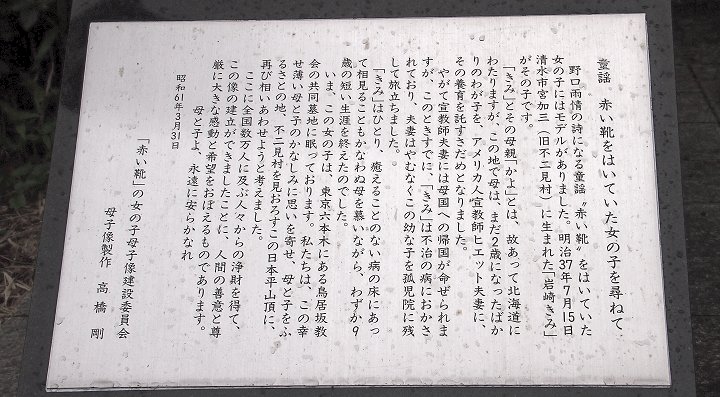 童謡 赤い靴をはいていた女の子を尋ねて
野口雨情の詩になる童謡〝赤い靴〟をはいていた
女の子にはモデルがありました。明治37年7月15日
清水市宮加三（旧不二見村）に生まれた「岩崎きみ」
がその子です。
「きみ」とその母親「かよ」とは、故あって北海道に
わたりますが、この地で母は、まだ2歳になったばか
りのわが子を、アメリカ人宣教師ヒエット夫妻に、
その養育を託すさだめとなりました。
やがて宣教師夫妻には母国への帰国が命ぜられま
すが、このときすでに、「きみ」は不治の病におかさ
れており、夫妻はやむなくこの幼な子を孤児院に残
して旅立ちました。
「きみ」はひとり、癒えることのない病の床にあっ
て相見ることもかなわぬ母を慕いながら、わずか9
歳の短い生涯を終えたのでした。
いま、この女の子は、東京六本木にある鳥居坂教
会の共同墓地に眠っております。私たちは、この幸
せ薄い母と子のかなしみに思いを寄せ、母と子をふ
るさとの地、不二見村を見おろすこの日本平山頂に、
再び相いあわせようと考えました。
ここに全国数万人に及ぶ人々からの浄財を得て、
この像の建立ができましたことに、人間の善意と尊
厳に大きな感動と希望をおぼえるものであります。
母と子よ、永遠に安らかなれ
昭和61年3月31日
「赤い靴」の女の子母子像建設委員会
母子像製作 高橋 剛